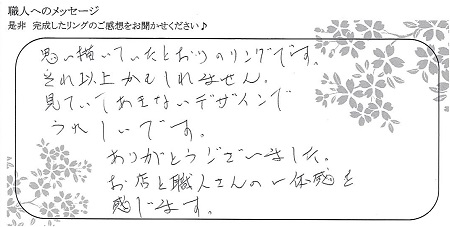 職人へのメッセージ
是非 完成したリングのご感想をお聞かせください♪
思い描いていたとおりのリングです。
それ以上かもしれません。
見ていてあきないデザインで
うれしいです。
ありがとうございました。
お店と職人さんの一体感を
感じます。